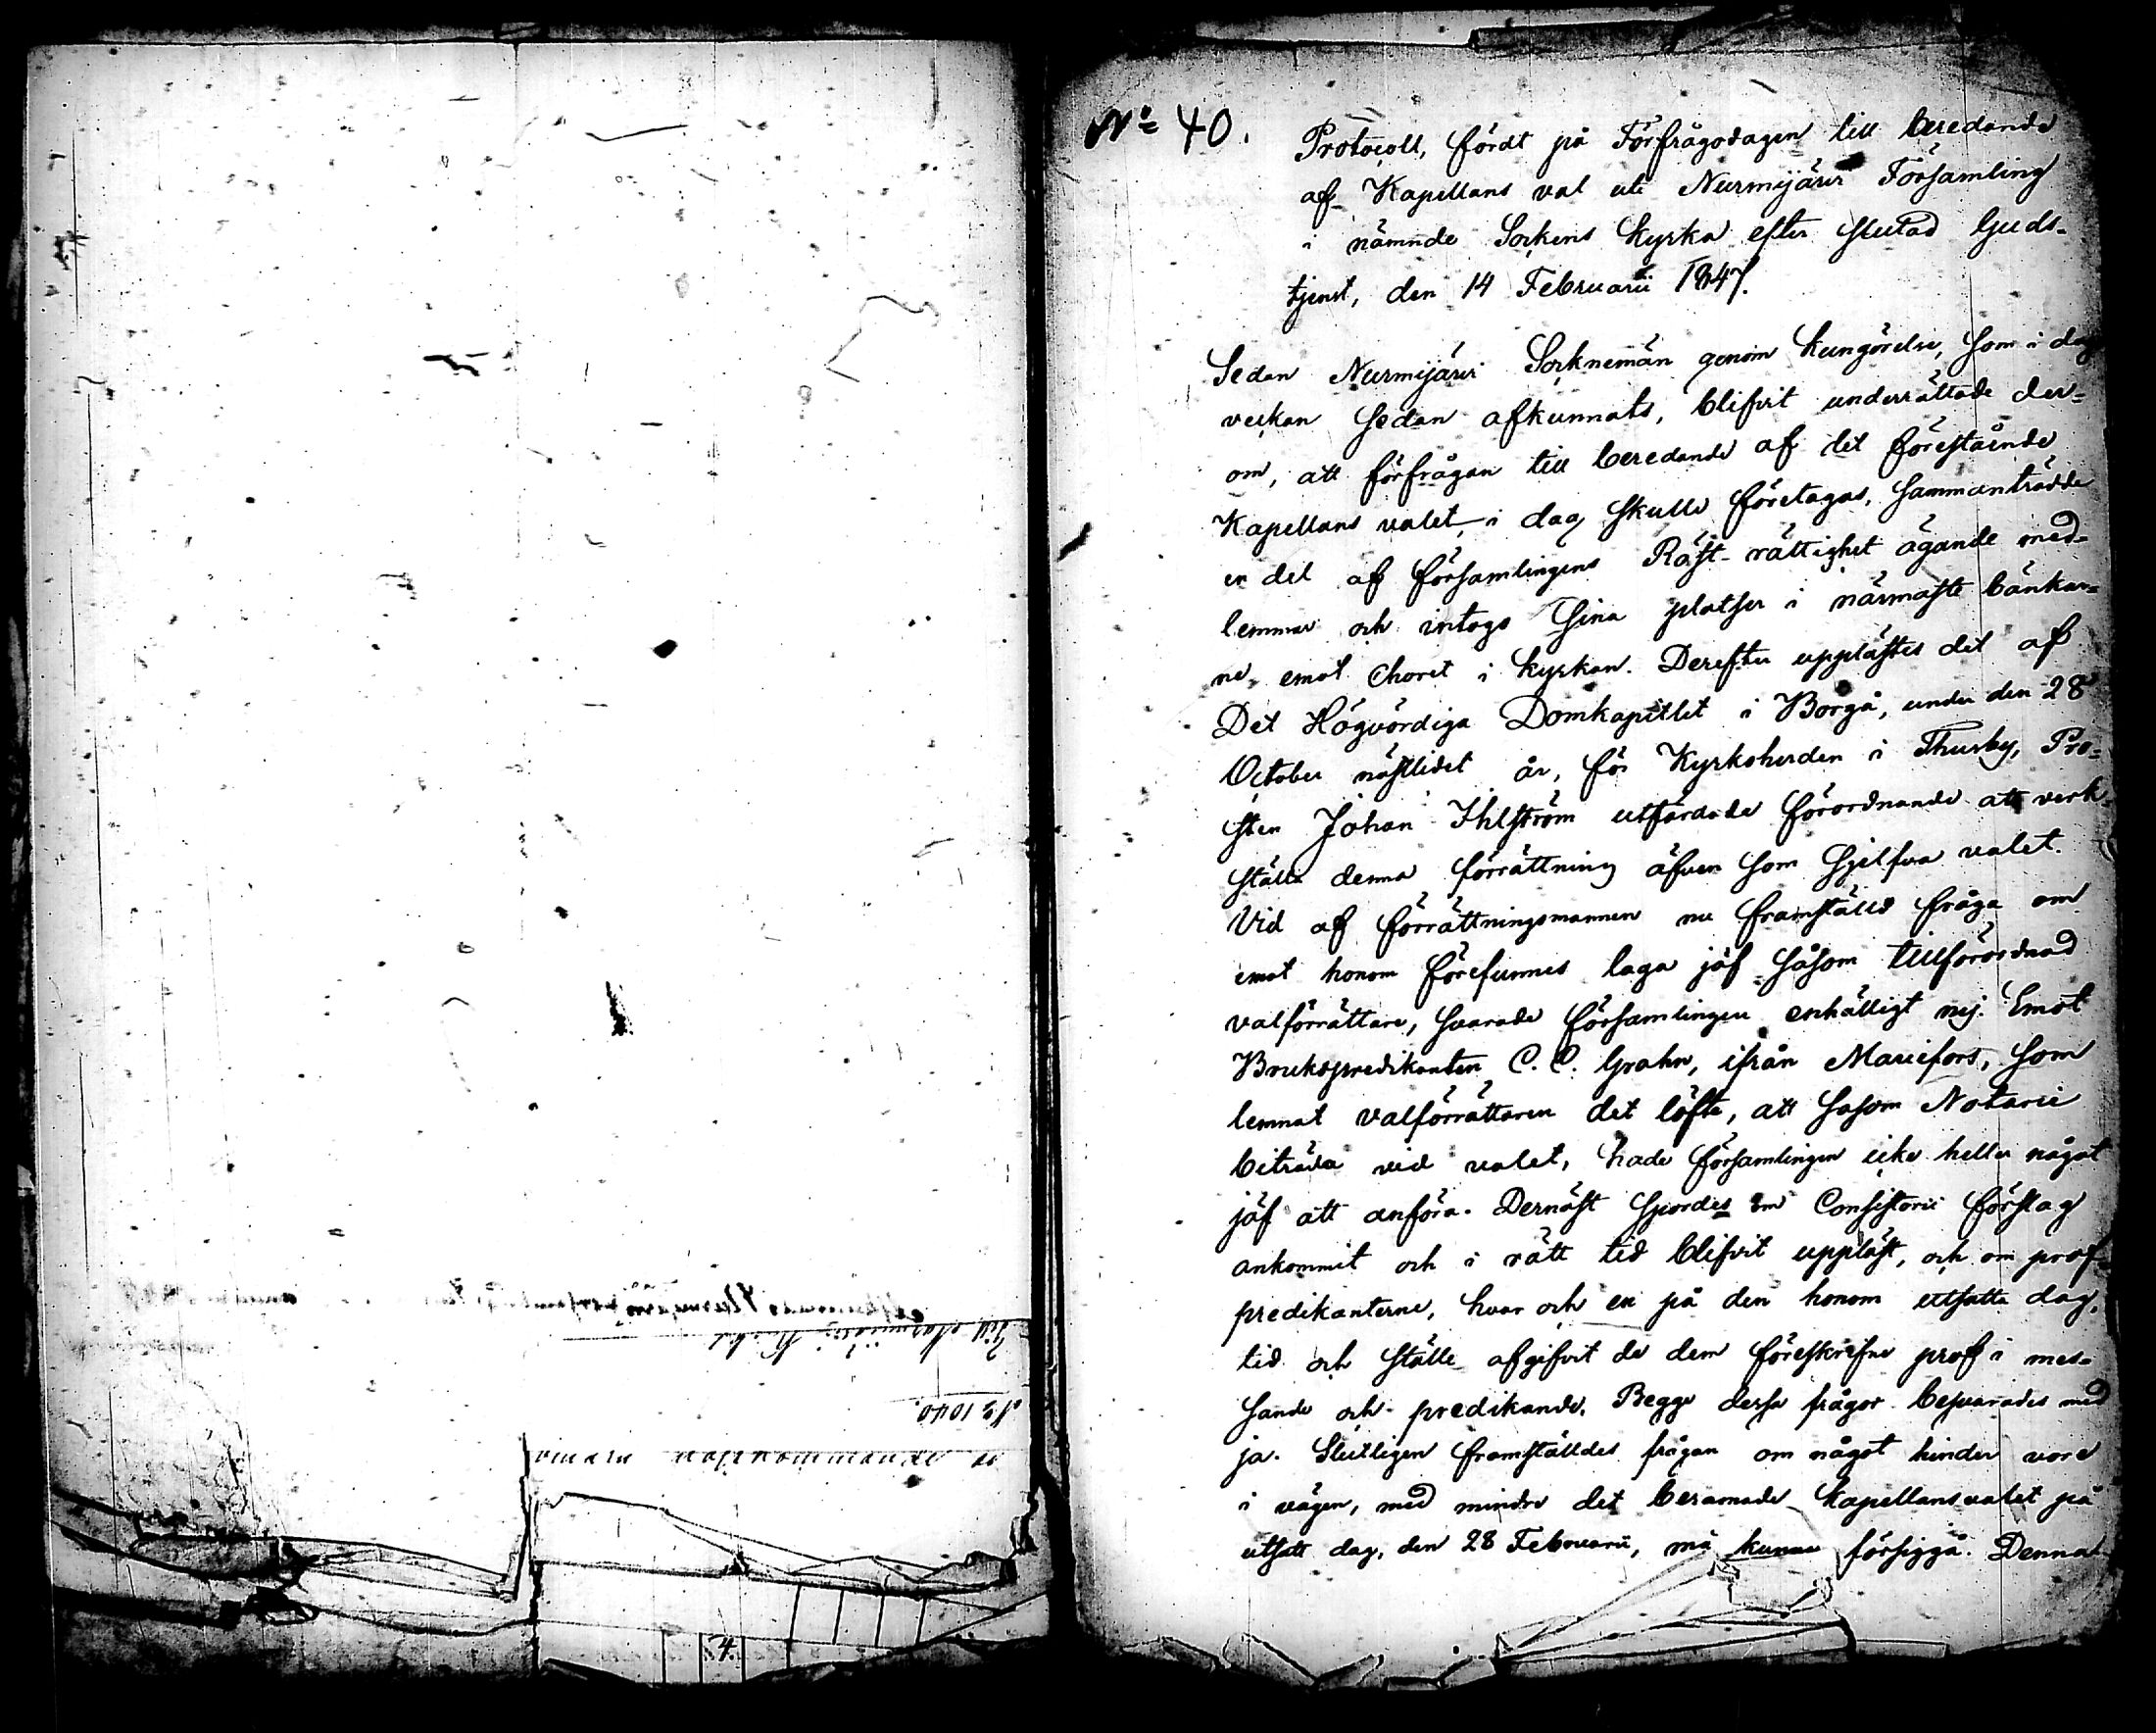 No 40.
Protocoll, fördt på Förfrågodagen till beredande
af Kapellans val uti Nurmijärvi Församling
i nämnde Sockens kyrka efter slutad Guds-
tjenst, den 14 Februarii 1847.
Sedan Nurmijärvi Socknemän genom kungörelse, som i dag
veckan sedan afkunnats, blifvit underrättade der-
om, att förfrågan till beredande af det förestående
Kapellans valet i dag skulle företagas, sammanträdde
en del af församlingens Röst-rättighet ägande med-
lemmar och intogo sina platser i närmaste bänkar-
ne emot choret i kyrkan. Derefter upplästes det af
Det Högvördiga Domkapitlet i Borgå, under den 28
October nästlidet år, för Kyrkoherden i Thusby, Pro-
sten Johan Ihlström utfärdade förordnande att verk-
ställa denna förrättning äfven som sjelfva valet.
Vid af förrättningsmannen nu framställd fråga om
emot honom förefunnes laga jäf såsom tillförordnad
valförrättare, svarade församlingen enhälligt nej. Emot
Brukspredikanten C. C. Grahn, ifrån Mariefors, som
lemnat valförrättaren det löfte, att såsom Notarie
biträda vid valet, hade församlingen icke heller något
jäf att anföra. Dernäst spordes om Consistorii förslag
ankommit och i rätt tid blifvit uppläst, och om prof-
predikanterne, hvar och en på den honom utsatta dag,
tid och ställe afgifvit de dem föreskrifne prof i mes-
sande och predikande. Begge dessa frågor besvarades med
ja. Slutligen framställdes frågan om något hinder vore
i vägen, med mindre det beramade kapellansvalet på
utsatt dag, den 28 Februarii, må kunna försiggå. Denna
No 1040.
4.